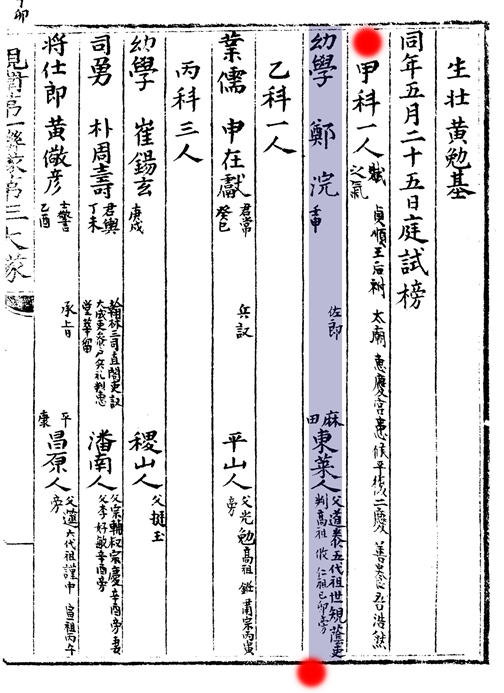 生壮 黄勉基
同年五月二十五日庭試榜
甲科一人 賦 之氣 貞順王后祔 太廟 惠慶宮 候平復二慶 善養吾浩然
幼學 鄭浣 壬申 佐郎 麻田 東萊人 父道 五代祖世規蔭吏判高祖 仁祖己卯旁
乙科一人
業儒 申在獻 君常 癸巳 兵議 平山人 父光勉高祖 肅宗丙寅旁
丙科三人
幼學 崔錫玄 庚戌 稷山人 父挺玉
司勇 朴周壽 君興 丁未 翰林三司直閣吏議大成吏參戶兵礼判惠堂華留 潘南人 父宗輔叔宗慶辛酉旁妻父李好敏辛酉旁
將仕郎 黄儆彦 士警 乙酉 承旨 平康 昌原人 父 六代祖謹中 宣祖丙午旁